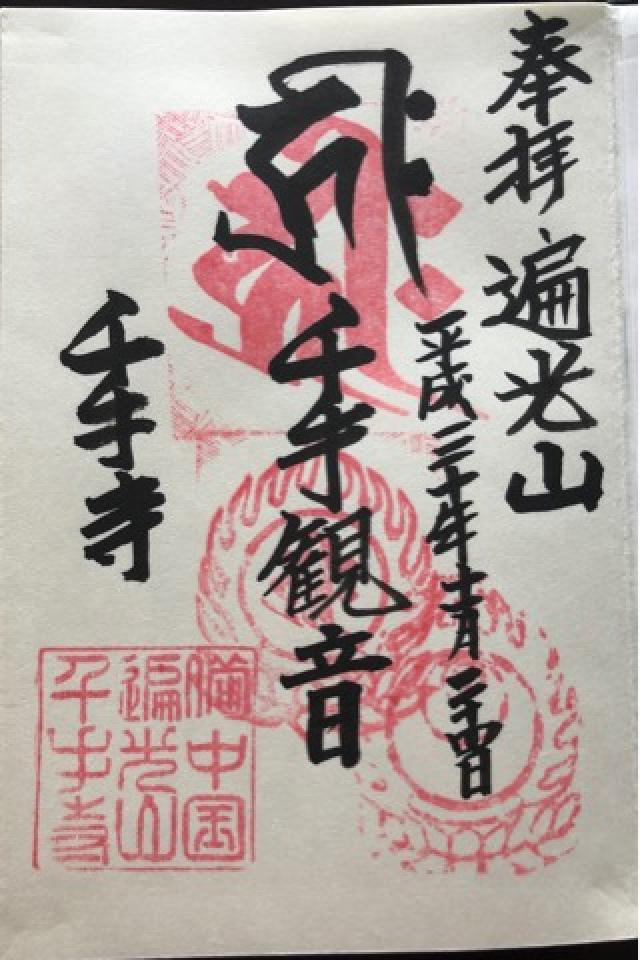 奉拝 遍光山
平成三十年十一月二十四日
千手観音
千手寺
備中国
遍光山
千手寺